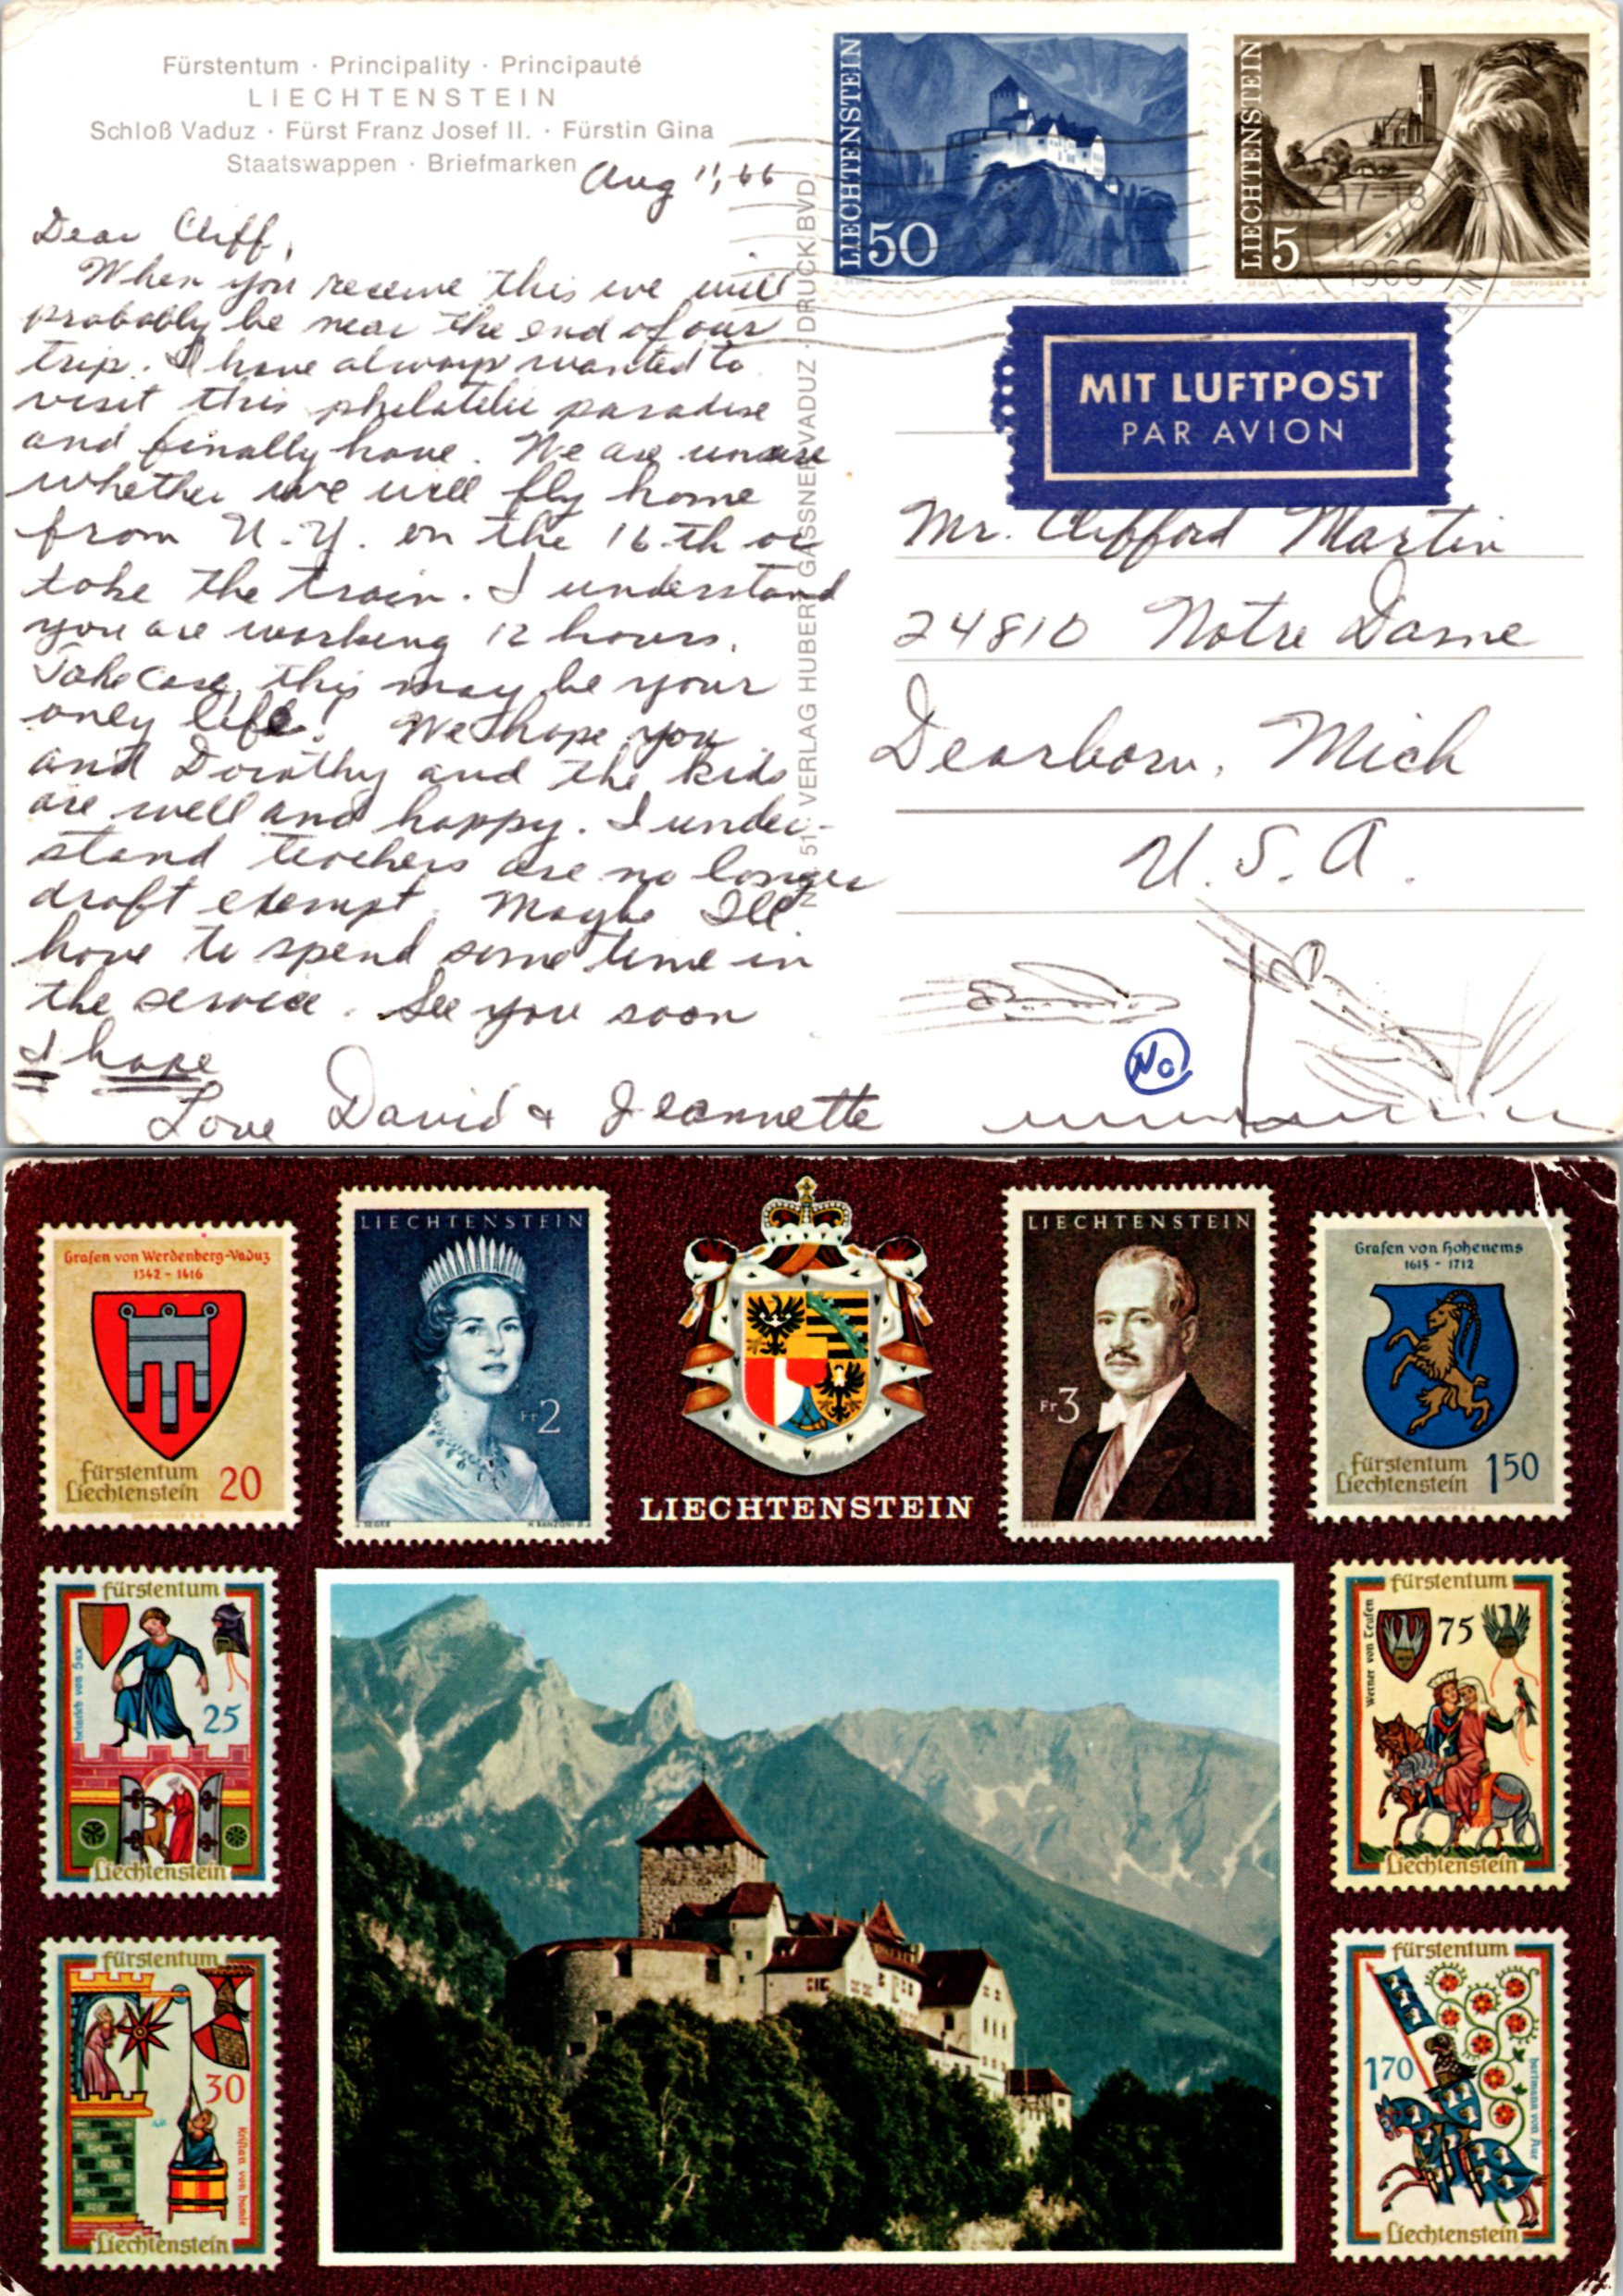 Fürstentum · Principality · Principauté
LIECHTENSTEIN
Schloß Vaduz · Fürst Franz Josef II. · Fürstin Gina
Staatswappen · Briefmarken
Aug 11, 66
Dear Cliff,
When you receive this we will
probably be near the end of our
trip. I have always wanted to
visit this philatelic paradise
and finally have. We are unsure
whether we will fly home
from N.Y. on the 16th or
take the train. I understand
you are working 12 hours.
Take care, this may be your
only life! We hope you
and Dorothy and the kids
are well and happy. I under-
stand teachers are no longer
draft exempt. Maybe I'll
have to spend some time in
the service. See you soon
I hope
Love David & Jeannette
51 VERLAG HUBER GASSNER VADUZ · DRUCK BVD
LIECHTENSTEIN
50
J. SEGER
COURVOISIER S.A.
LIECHTENSTEIN
5
J. SEGER
COURVOISIER S.A.
17-18
1966
MIT LUFTPOST
PAR AVION
Mr. Clifford Martin
24810 Notre Dame
Dearborn, Mich
U.S.A.
No
Grafen von Werdenberg-Vaduz
1342 - 1416
Fürstentum
Liechtenstein 20
COURVOISIER S.A.
LIECHTENSTEIN
Fr 2
J. SEGER
H. RANZONI D.J.
LIECHTENSTEIN
LIECHTENSTEIN
Fr 3
J. SEGER
H. RANZONI D.J.
Grafen von Hohenems
1613 - 1712
Fürstentum
Liechtenstein 1 50
COURVOISIER S.A.
Fürstentum
Heinrich von Sax
25
Liechtenstein
Fürstentum
Werner von Teufen
75
Liechtenstein
Fürstentum
30
Kristan von Hamle
Liechtenstein
Fürstentum
1 70
Hartmann von Aue
Liechtenstein